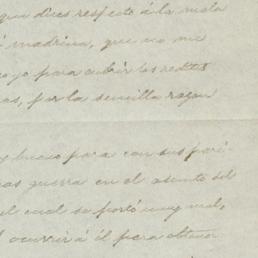 que dices respecto á la mala
madrina, que no me
yo para cubrir los reditos
as, por la sencilla razon
y bueno para con sus pari-
as guerra en el asunto del
el cual se portó muy mal,
ocurrir á él para obtener